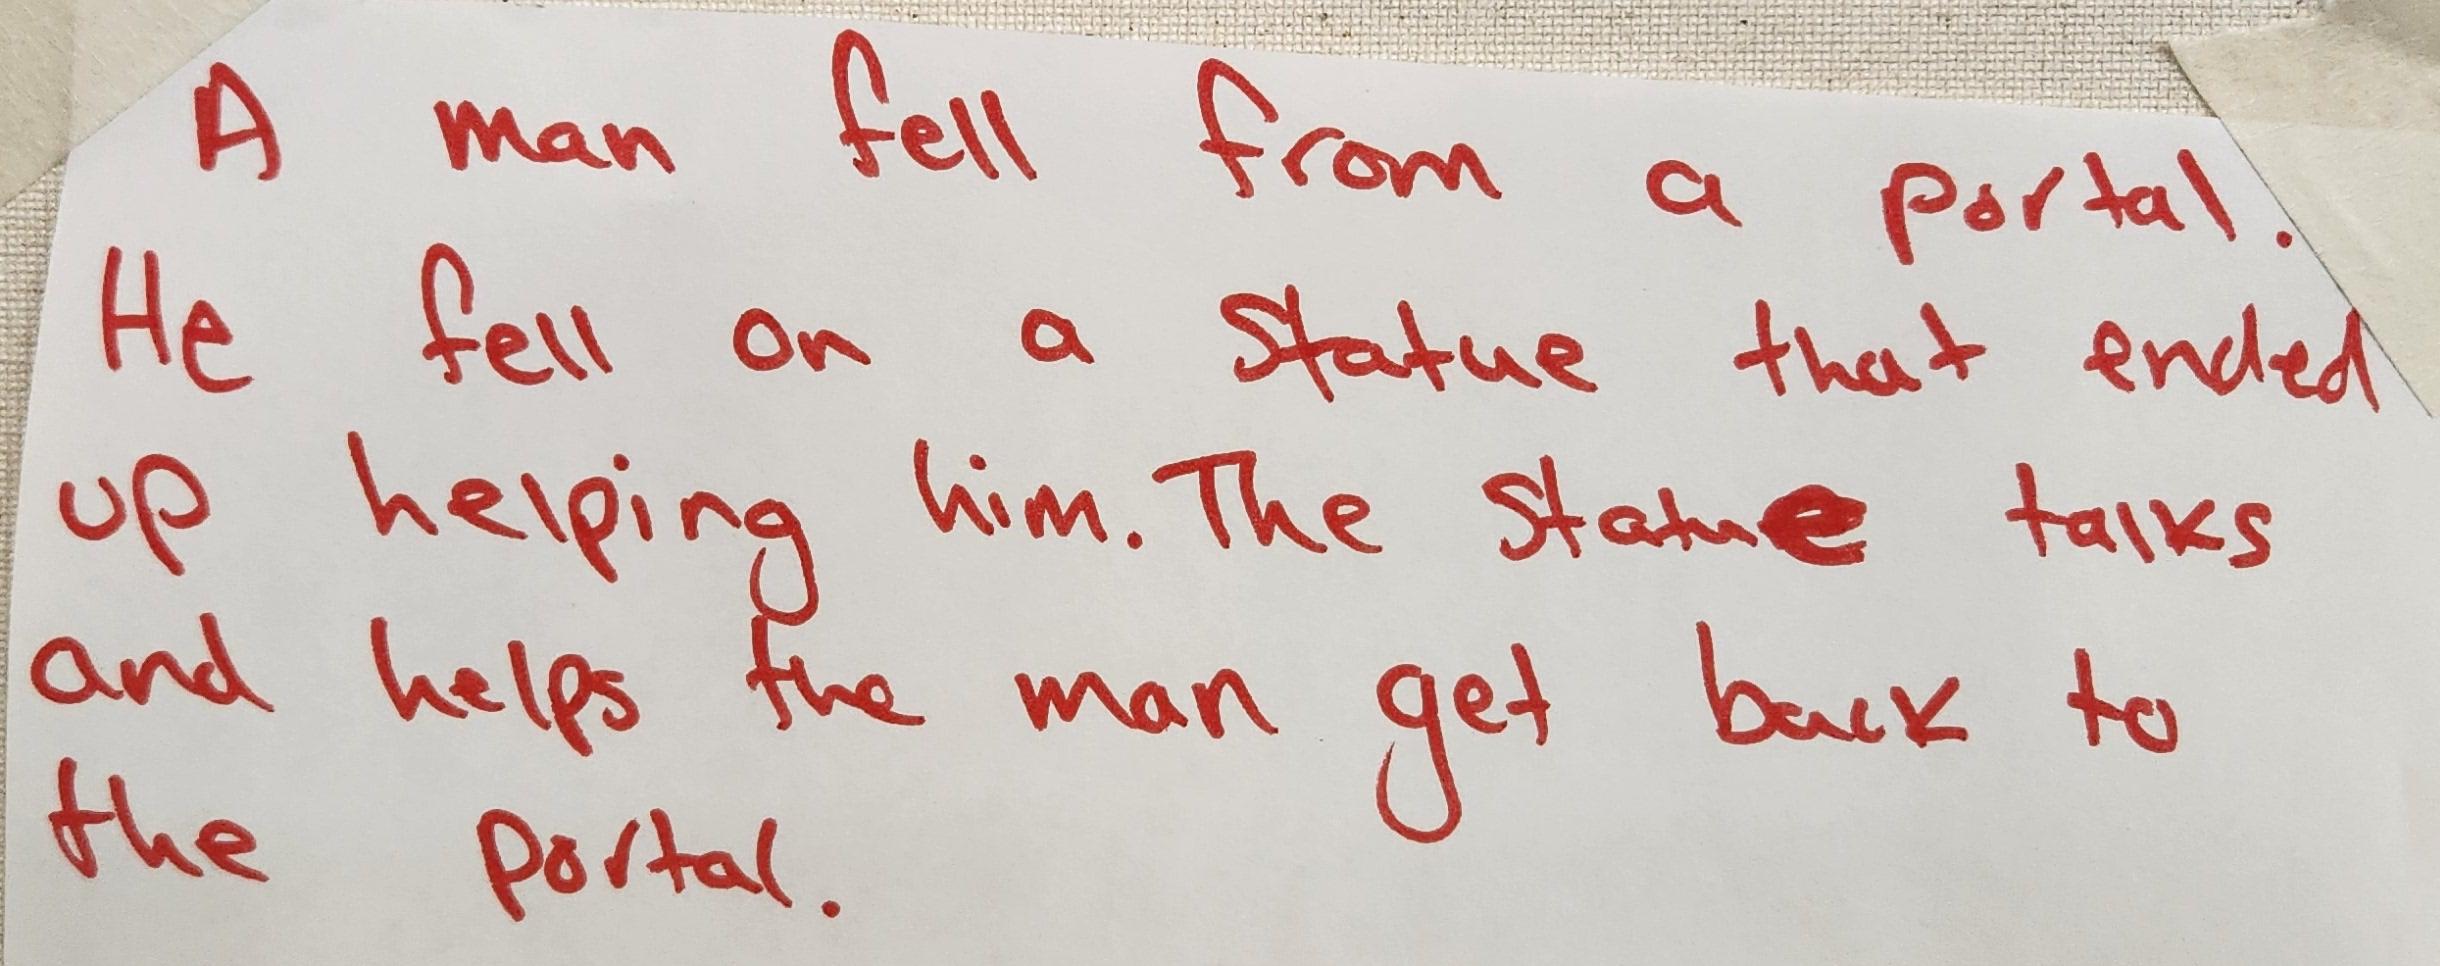 A man fell from a portal.
He fell on a statue that ended
up helping him. The statue talks
and helps the man get back to
the portal.